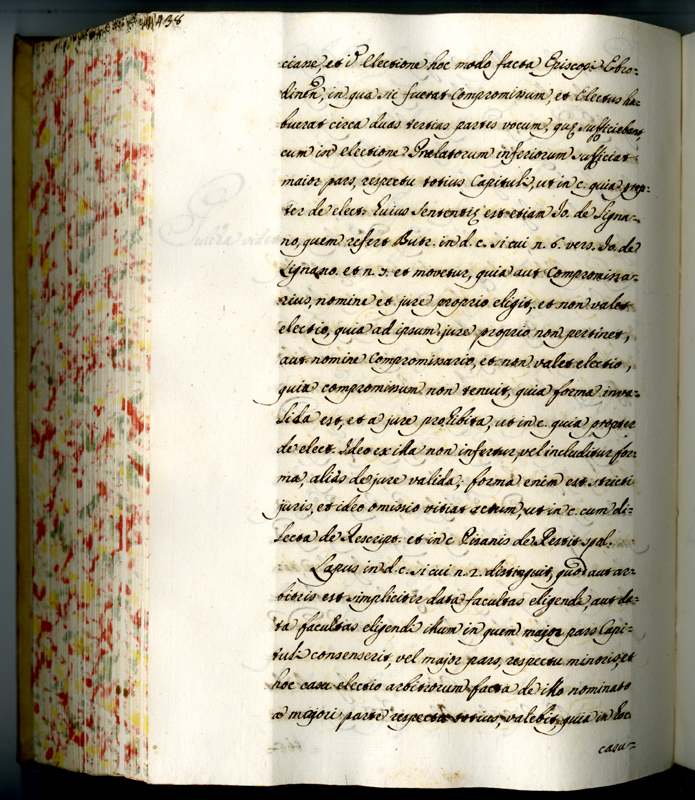 438
ciane, et iº Electione hoc modo facta Episcopi Ebro=
dinen, in qua sic fuerat Compromissum, et Electus ha=
buerat circa duas tertias partes vocum, quę sufficiebant,
cum in electione Prælatorum inferiorum sufficiat
maior pars, respectu totius Capituli, ut in c. quia prop=
ter de elect. Cuius sententię est etiam Jo. de Ligna=
no, quem refert Butr. in d. c. si cui n. 6. vers. Jo. de
Lignano. et n. 7. et movetur, quia aut Compromissa=
rius, nomine et jure proprio eligit, et non valet
electio, quia ad ipsum jure proprio non pertinet,
aut nomine Compromissario, et non valet electio,
quia compromissum non tenuit, quia forma inva=
lida est, et a jure prohibita, ut in c. quia propter
de elect. Ideo ex illa non infertur, vel includitur for=
ma, aliàs de jure valida; forma enim est stricti
juris, et ideo omissio vitiat actum, ut in c. cum di=
lecta de Rescript. et in c. Pisanis de Restit. spol.
Lapus in d. c. si cui n. 2. distinguit, quod aut ar=
bitris est simpliciter data facultas eligendi, aut da=
ta facultas eligendi illum in quem major pars Capi=
tuli consenserit, vel major pars, respectu minoris, et
hoc casu electio arbitrorum facta de illo nominato
a majori parte respectu totius, valebit, quia in hoc
casu=